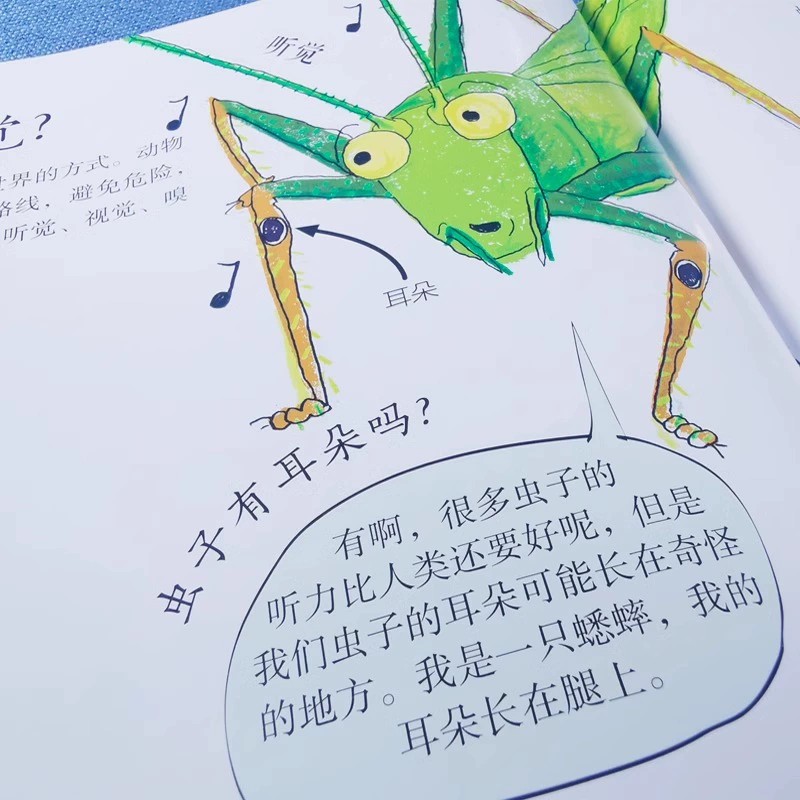 听觉
觉？
世界的方式。动物
路线，避免危险，
听觉、视觉、嗅
耳朵
虫子有耳朵吗？
有啊，很多虫子的
听力比人类还要好呢，但是
我们虫子的耳朵可能长在奇怪
的地方。我是一只蟋蟀，我的
耳朵长在腿上。